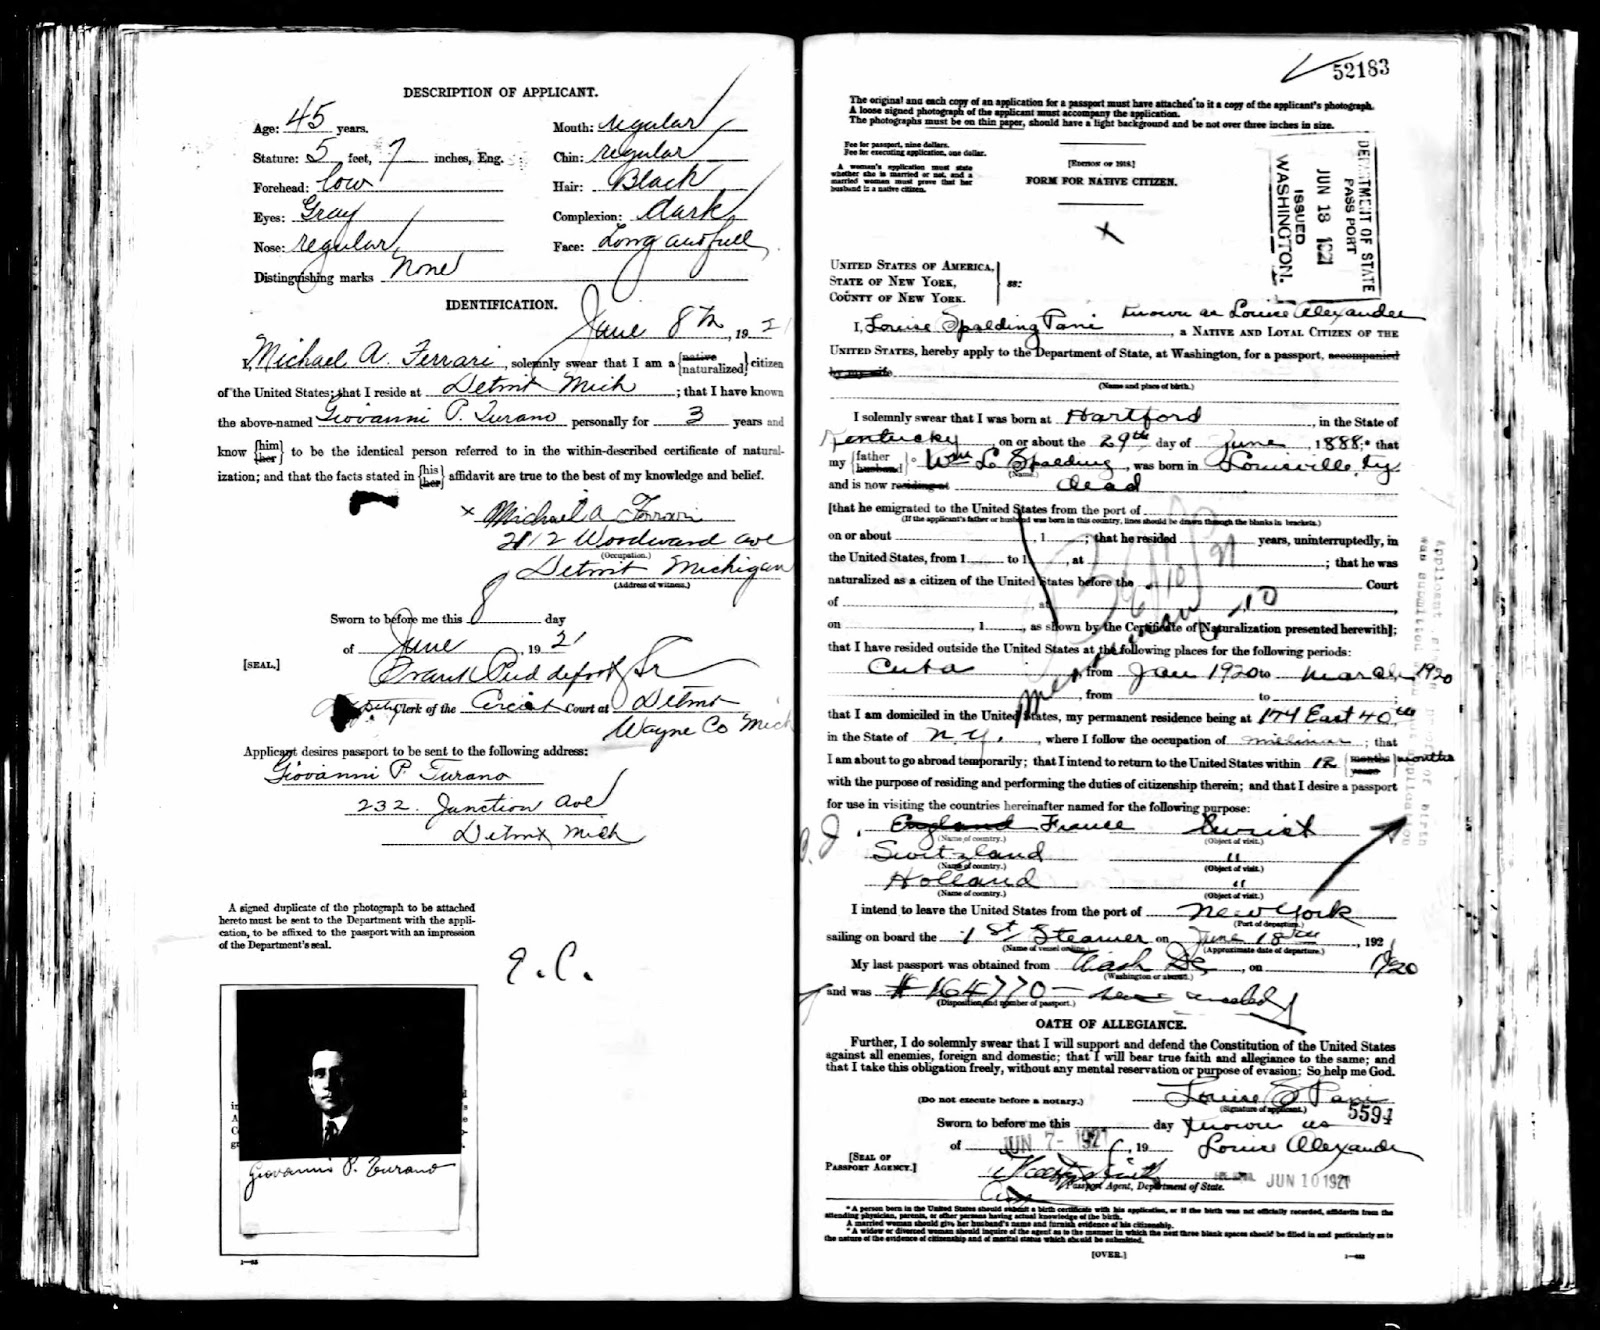 DESCRIPTION OF APPLICANT.
Age: 45 years.
Mouth: regular
Stature: 5 feet, 7 inches, Eng.
Chin: regular
Forehead: low
Hair: Black
Eyes: Gray
Complexion: dark
Nose: regular
Face: Long and full
Distinguishing marks None
IDENTIFICATION.
June 8th, 1921
I, Michael A. Ferrari, solemnly swear that I am a {native naturalized} citizen
of the United States; that I reside at Detroit Mich; that I have known
the above-named Giovanni P. Turano personally for 3 years and
know {him her} to be the identical person referred to in the within-described certificate of natural-
ization; and that the facts stated in {his her} affidavit are true to the best of my knowledge and belief.
x Michael A Ferrari
2112 Woodward ave
(Occupation.)
Detroit Michigan
(Address of witness.)
Sworn to before me this 8 day
of June, 1921
[SEAL.]
Frank Sr
Deputy Clerk of the Circuit Court at Detroit
Wayne Co Mich
Applicant desires passport to be sent to the following address:
Giovanni P. Turano
232 Junction Ave
Detroit Mich
A signed duplicate of the photograph to be attached
hereto must be sent to the Department with the appli-
cation, to be affixed to the passport with an impression
of the Department's seal.
Giovanni P. Turano
52183
The original and each copy of an application for a passport must have attached to it a copy of the applicant's photograph.
A loose signed photograph of the applicant must accompany the application.
The photographs must be on thin paper, should have a light background and be not over three inches in size.
Fee for passport, nine dollars.
Fee for executing application, one dollar.
A woman's application must state
whether she is married or not, and a
married woman must prove that her
husband is a native citizen.
[EDITION OF 1918.]
FORM FOR NATIVE CITIZEN.
DEPARTMENT OF STATE
PASSPORT
JUN 18 1921
ISSUED
WASHINGTON.
UNITED STATES OF AMERICA,
STATE OF NEW YORK,
COUNTY OF NEW YORK.
ss:
known as Louise Alexander
I, Louise Spalding Pani, a NATIVE AND LOYAL CITIZEN OF THE
UNITED STATES, hereby apply to the Department of State, at Washington, for a passport, accompanied
by my wife
(Name and place of birth.)
I solemnly swear that I was born at Hartford, in the State of
Kentucky, on or about the 29th day of June, 1888;* that
my {father husband}° Wm L Spalding, was born in Louisville, Ky
(Name.)
and is now residing at dead
[that he emigrated to the United States from the port of
(If the applicant's father or husband was born in this country, lines should be drawn through the blanks in brackets.)
on or about , 1 ; that he resided years, uninterruptedly, in
the United States, from 1 to 1 , at ; that he was
naturalized as a citizen of the United States before the Court
of , at ,
on , 1 , as shown by the Certificate of Naturalization presented herewith];
that I have resided outside the United States at the following places for the following periods:
Cuba from Jan 1920 to March 1920
, from to ;
that I am domiciled in the United States, my permanent residence being at 174 East 40th
in the State of N.Y., where I follow the occupation of ; that
I am about to go abroad temporarily; that I intend to return to the United States within 12 {months years} months
with the purpose of residing and performing the duties of citizenship therein; and that I desire a passport
for use in visiting the countries hereinafter named for the following purpose:
England France
(Name of country.)
(Object of visit.)
Switzland "
(Name of country.)
(Object of visit.)
Holland "
(Name of country.)
(Object of visit.)
I intend to leave the United States from the port of New York
(Port of departure.)
sailing on board the 1st Steamer on June 18th, 1921
(Name of vessel.)
(Approximate date of departure.)
My last passport was obtained from Wash DC, on 1920
(Washington or abroad.)
and was #164770
(Disposition and number of passport.)
OATH OF ALLEGIANCE.
Further, I do solemnly swear that I will support and defend the Constitution of the United States
against all enemies, foreign and domestic; that I will bear true faith and allegiance to the same; and
that I take this obligation freely, without any mental reservation or purpose of evasion: So help me God.
Louise S Pani
(Do not execute before a notary.)
(Signature of applicant.)
5594
Sworn to before me this day known as
of JUN 7- 1921, 19 Louise Alexander
[SEAL OF
PASSPORT AGENCY.]
Passport Agent, Department of State.
JUN 10 1921
* A person born in the United States should submit a birth certificate with his application, or if the birth was not officially recorded, affidavits from the
attending physician, parents, or other persons having actual knowledge of the birth.
A married woman should give her husband's name and furnish evidence of his citizenship.
° A widow or divorced woman should inquire of the agent as to the manner in which the next three blank spaces should be filled in and particularly as to
the nature of the evidence of citizenship and of marital status which should be submitted.
[OVER.]